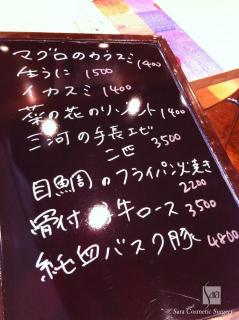 マグロのカラスミ 1400
生うに 1500
イカスミ 1400
菜の花のリゾット 1400
三河の手長エビ
二匹 3500
目鯛のフライパン焼き
2200
骨付 牛ロース 3500
純血バスク豚 4800
Sara
© Sara Cosmetic Surgery